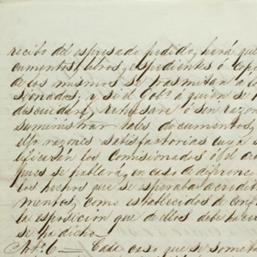 recibo del espresado pedido, hará que
cumentos, libros, espedientes ó copi
de los mismos se trasmitan á
sionados; y si el Gob.º ó quien se
descuidare, rehusare ó sin razon
suministrar tales documentos,
dfo razones satisfactorias cuya
ficaran los Comisionados
pues se fallará, en caso de diferenc
los hechos que se esperaban acredit
mentos, como establecidos de conf
la esposicion que de ellos
se ha dicho
Art.º 6 — Cada caso que se somet